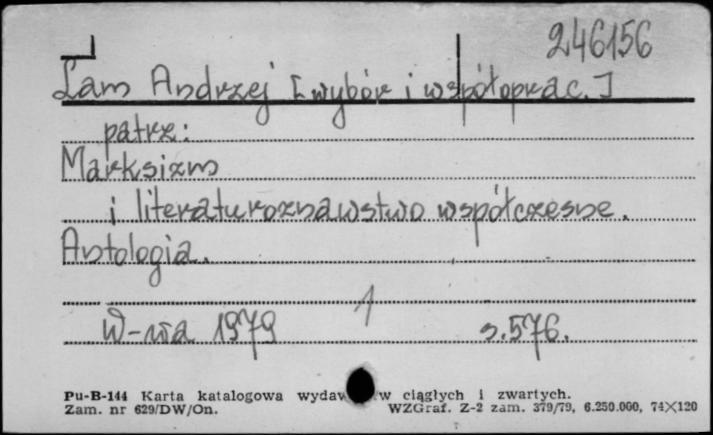 246156
Lam Andrzej [wybór i współoprac.]
patrz:
Marksizm
i literaturoznawstwo współczesne.
Antologia.
1
W-wa 1979 s.576.
Pu-B-144 Karta katalogowa wydaw w ciągłych i zwartych.
Zam. nr 629/DW/On. WZGraf. Z-2 zam. 379/79, 6.250.000, 74×120